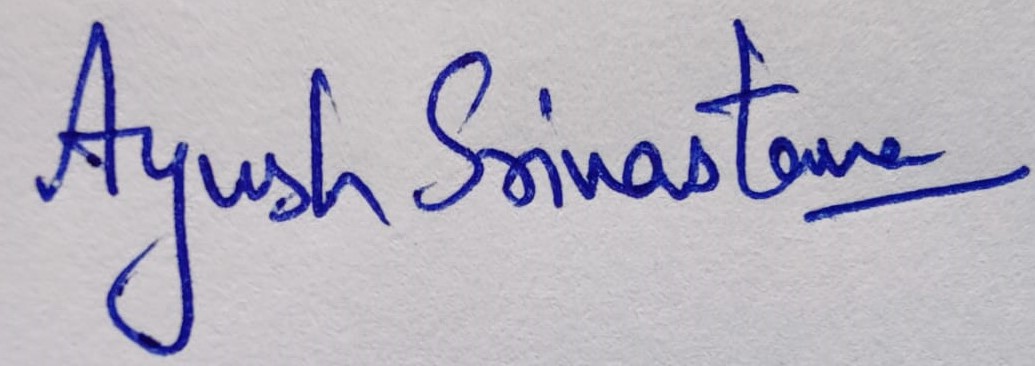 Ayush Srivastava